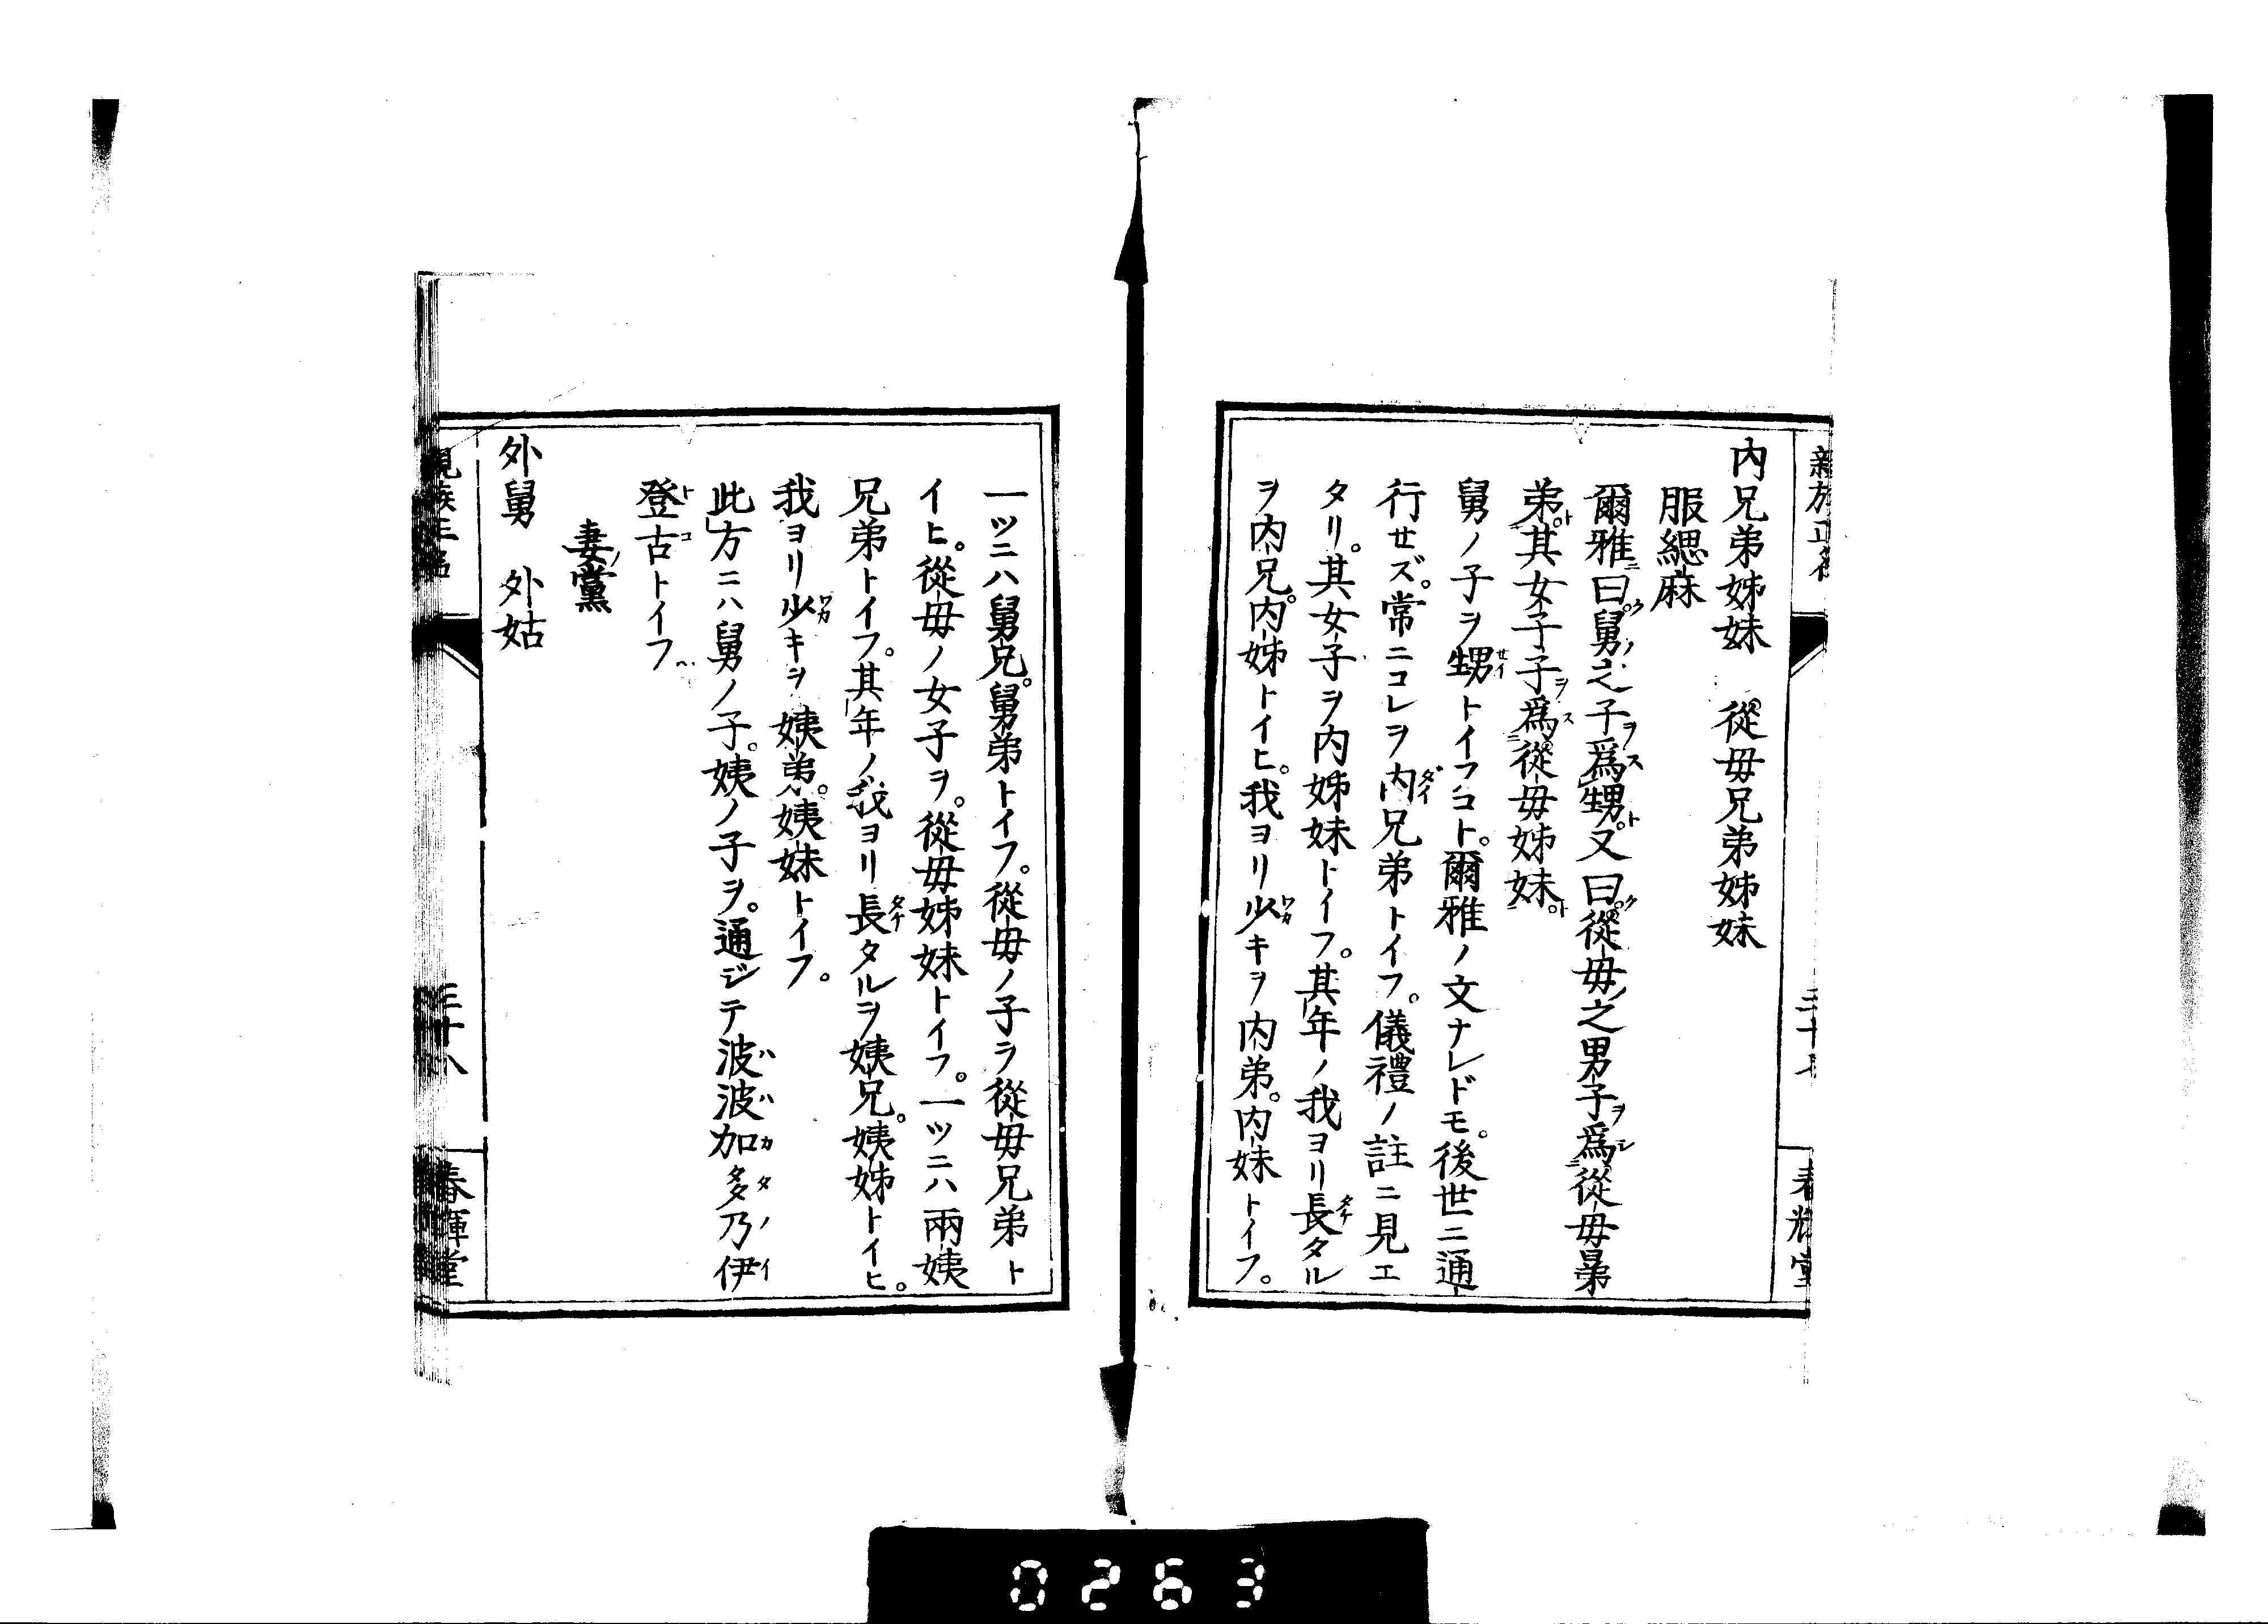 内兄弟姊妹　從母兄弟姊妹
服緦麻
爾雅曰。舅之子爲甥。又曰。從母之男子爲從母晜弟
弟。其女子子爲從母姊妹。
舅ノ子ヲ甥トイフコト。爾雅ノ文ナレドモ。後世ニ通
行セズ。常ニコレヲ内兄弟トイフ。儀禮ノ註ニ見エ
タリ。其女子ヲ内姊妹トイフ。其年ノ我ヨリ長タル
ヲ内兄。内姊トイヒ。我ヨリ少キヲ内弟。内妹トイフ。
春輝堂
一ツニハ舅兄。舅弟トイフ。從母ノ子ヲ從母兄弟ト
イヒ。從母ノ女子ヲ。從母姊妹トイフ。一ツニハ兩姨
兄弟トイフ。其年ノ我ヨリ長タルヲ姨兄。姨姊トイヒ。
我ヨリ少キヲ姨弟。姨妹トイフ。
此方ニハ舅ノ子。姨ノ子ヲ。通ジテ波波加多乃伊
登古トイフ
妻黨
外舅　外姑
三十八
春輝堂
0263